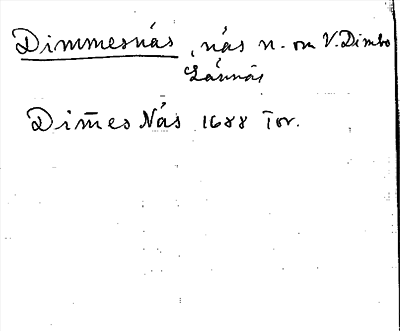 Dimmesnäs, näs n. om V. Dimbo
Lännäs
Dim̄es Näs 1688 Tor.